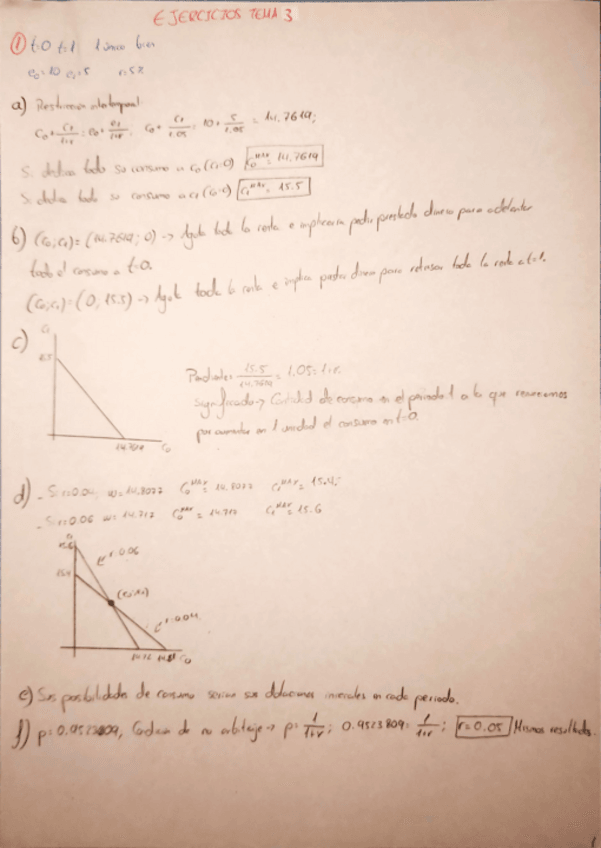 EJERCICIOS TEMA 3
① t=0 t=1 1 único bien
e₀=10 e₁=5 r=5%
a) Restricción intertemporal
C₀+ C₁/1+r = e₀+ e₁/1+r. C₀+ C₁/1.05 = 10+ 5/1.05 = 14.7619;
Si dedica todo su consumo a C₀ (C₁=0) C₀ᴹᴬˣ= 14.7619
Si dedica todo su consumo a C₁ (C₀=0) C₁ᴹᴬˣ= 15.5
b) (C₀,C₁)=(14.7619; 0) -> Agota toda la renta e implicaría pedir prestado dinero para adelantar
todo el consumo a t=0.
(C₀,C₁)=(0, 15.5) -> Agota toda la renta e implica prestar dinero para retrasar toda la renta a t=1.
c)
C₁
15.5
14.7619 C₀
Pendiente= 15.5/14.7619 = 1.05= 1+r.
Significado -> Cantidad de consumo en el periodo 1 a lo que renunciamos
por aumentar en 1 unidad el consumo en t=0.
d) - Si r=0.04 w=14.8077 C₀ᴹᴬˣ= 14.8077 C₁ᴹᴬˣ= 15.4
- Si r=0.06 w=14.717 C₀ᴹᴬˣ= 14.717 C₁ᴹᴬˣ= 15.6
C₁
15.6
r=0.06
15.4
(e₀,e₁)
r=0.04
14.72 14.81 C₀
e) Sus posibilidades de consumo serían sus dotaciones iniciales en cada periodo.
f) p=0.9523809, Condición de no arbitraje -> p= 1/1+r; 0.9523809= 1/1+r; r=0.05 Mismos resultados.